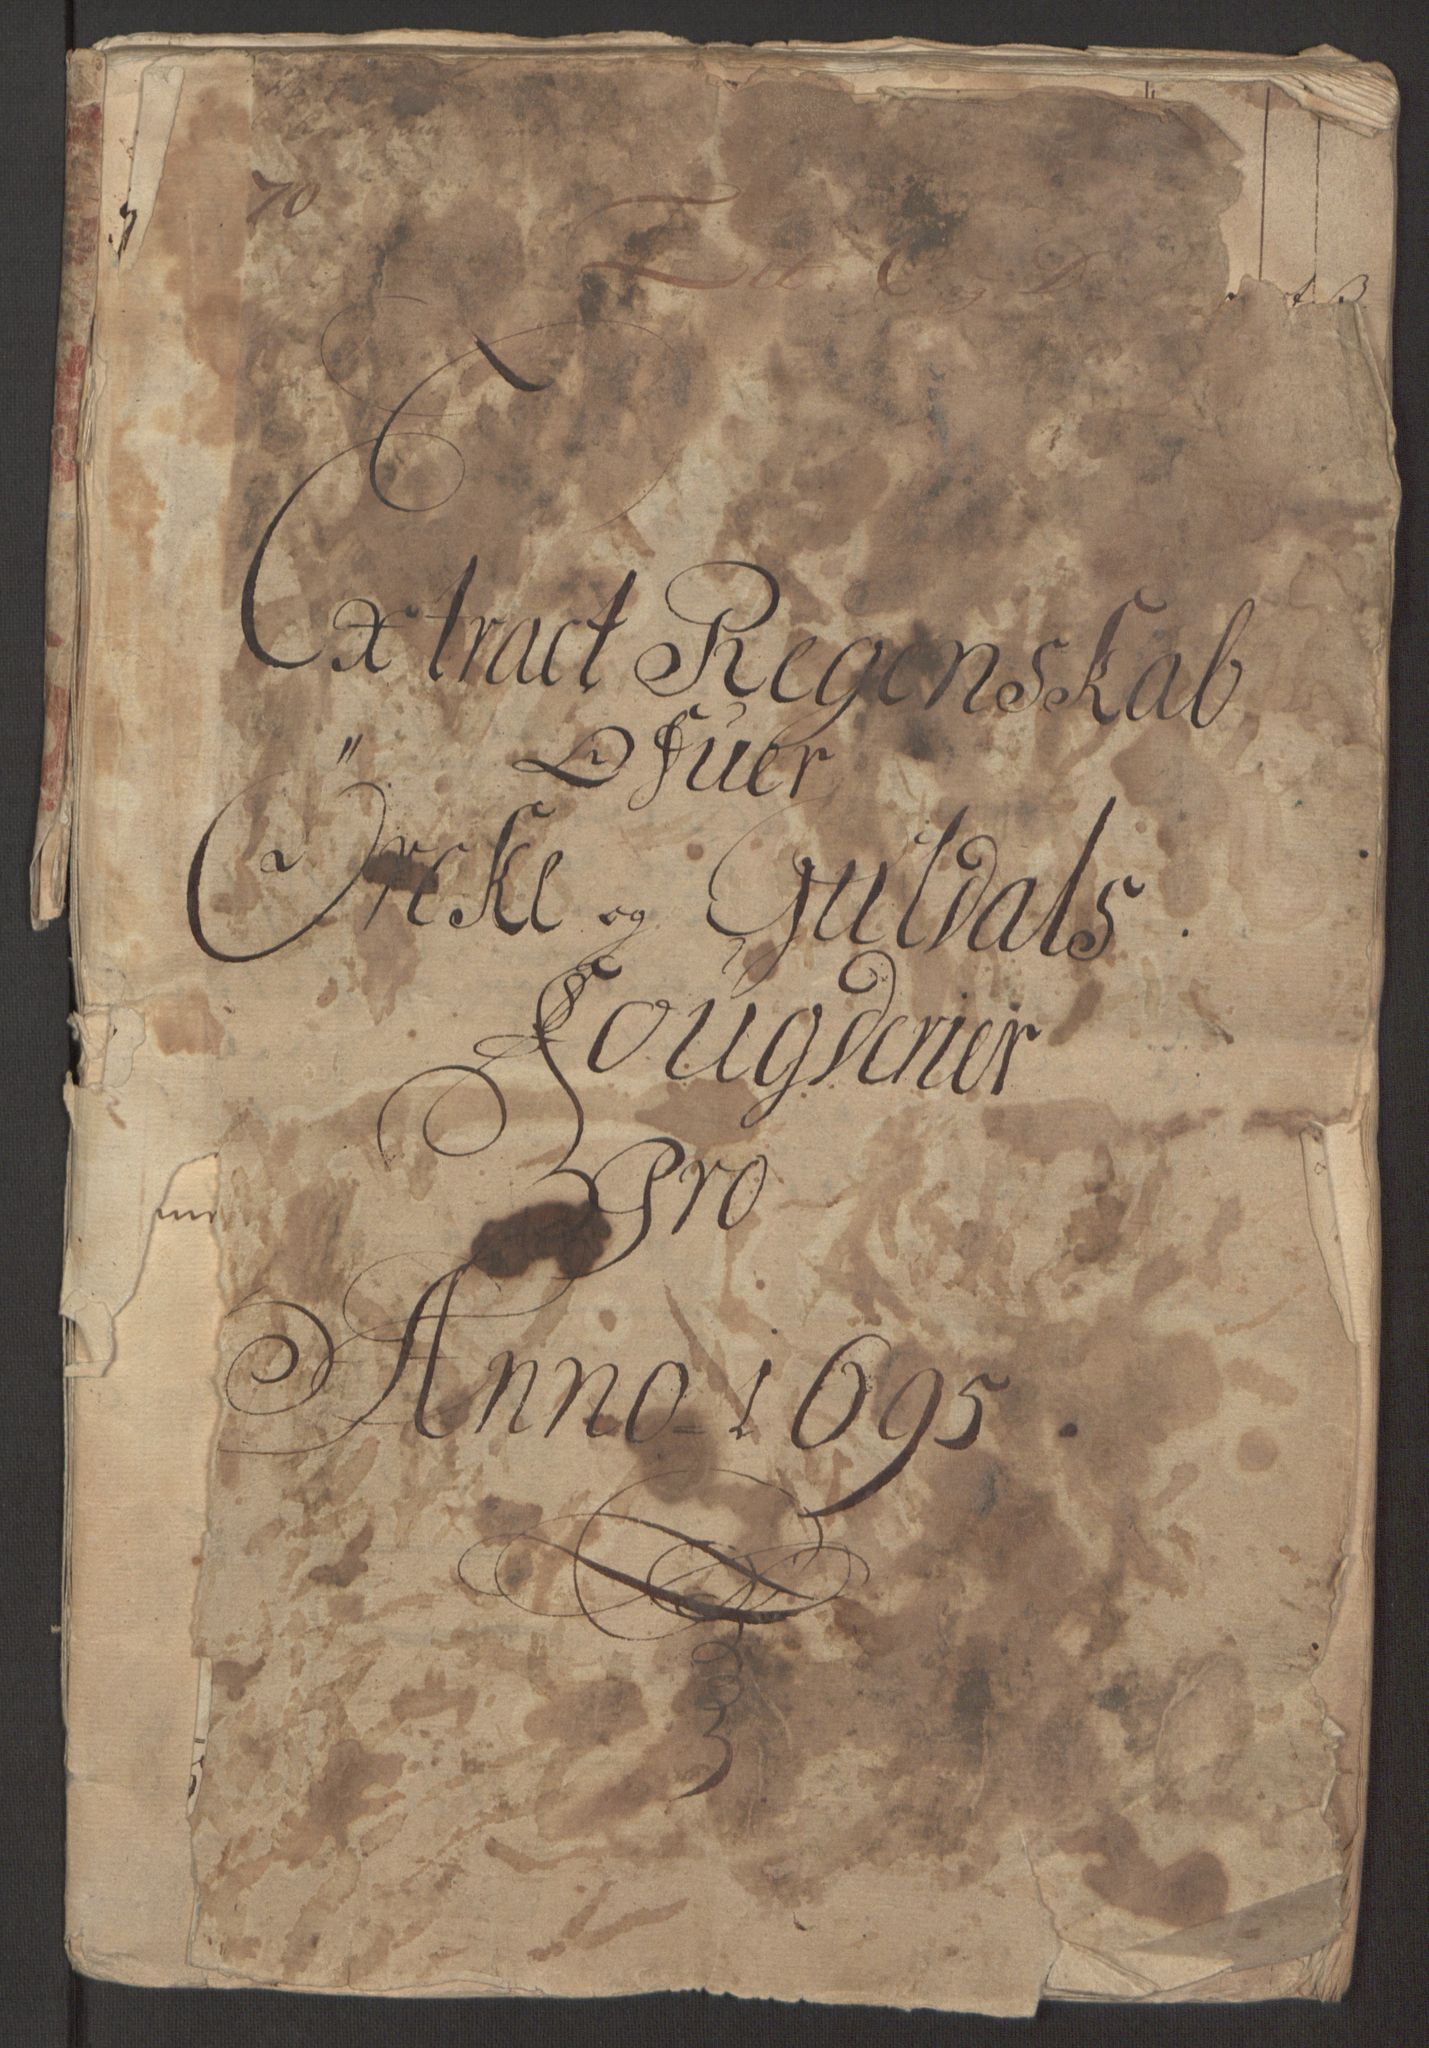 70
Litt. C og D.
Extract Regenskab
Ofuer
Örckle og Guldals
Fougderier
Pro
Anno 1695.